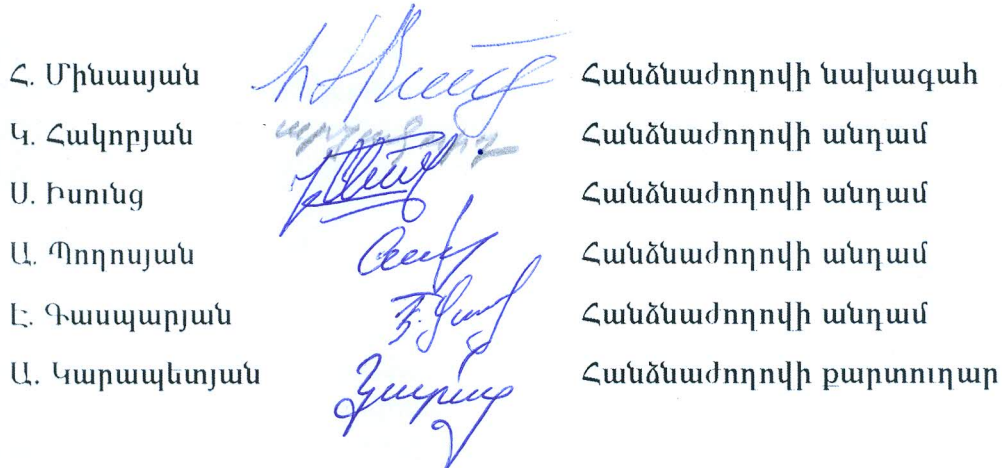 Հ. Մինասյան Հանձնաժողովի նախագահ
Կ. Հակոբյան Հանձնաժողովի անդամ
Ս. Իսունց Հանձնաժողովի անդամ
Ա. Պողոսյան Հանձնաժողովի անդամ
Է. Գասպարյան Հանձնաժողովի անդամ
Ա. Կարապետյան Հանձնաժողովի քարտուղար